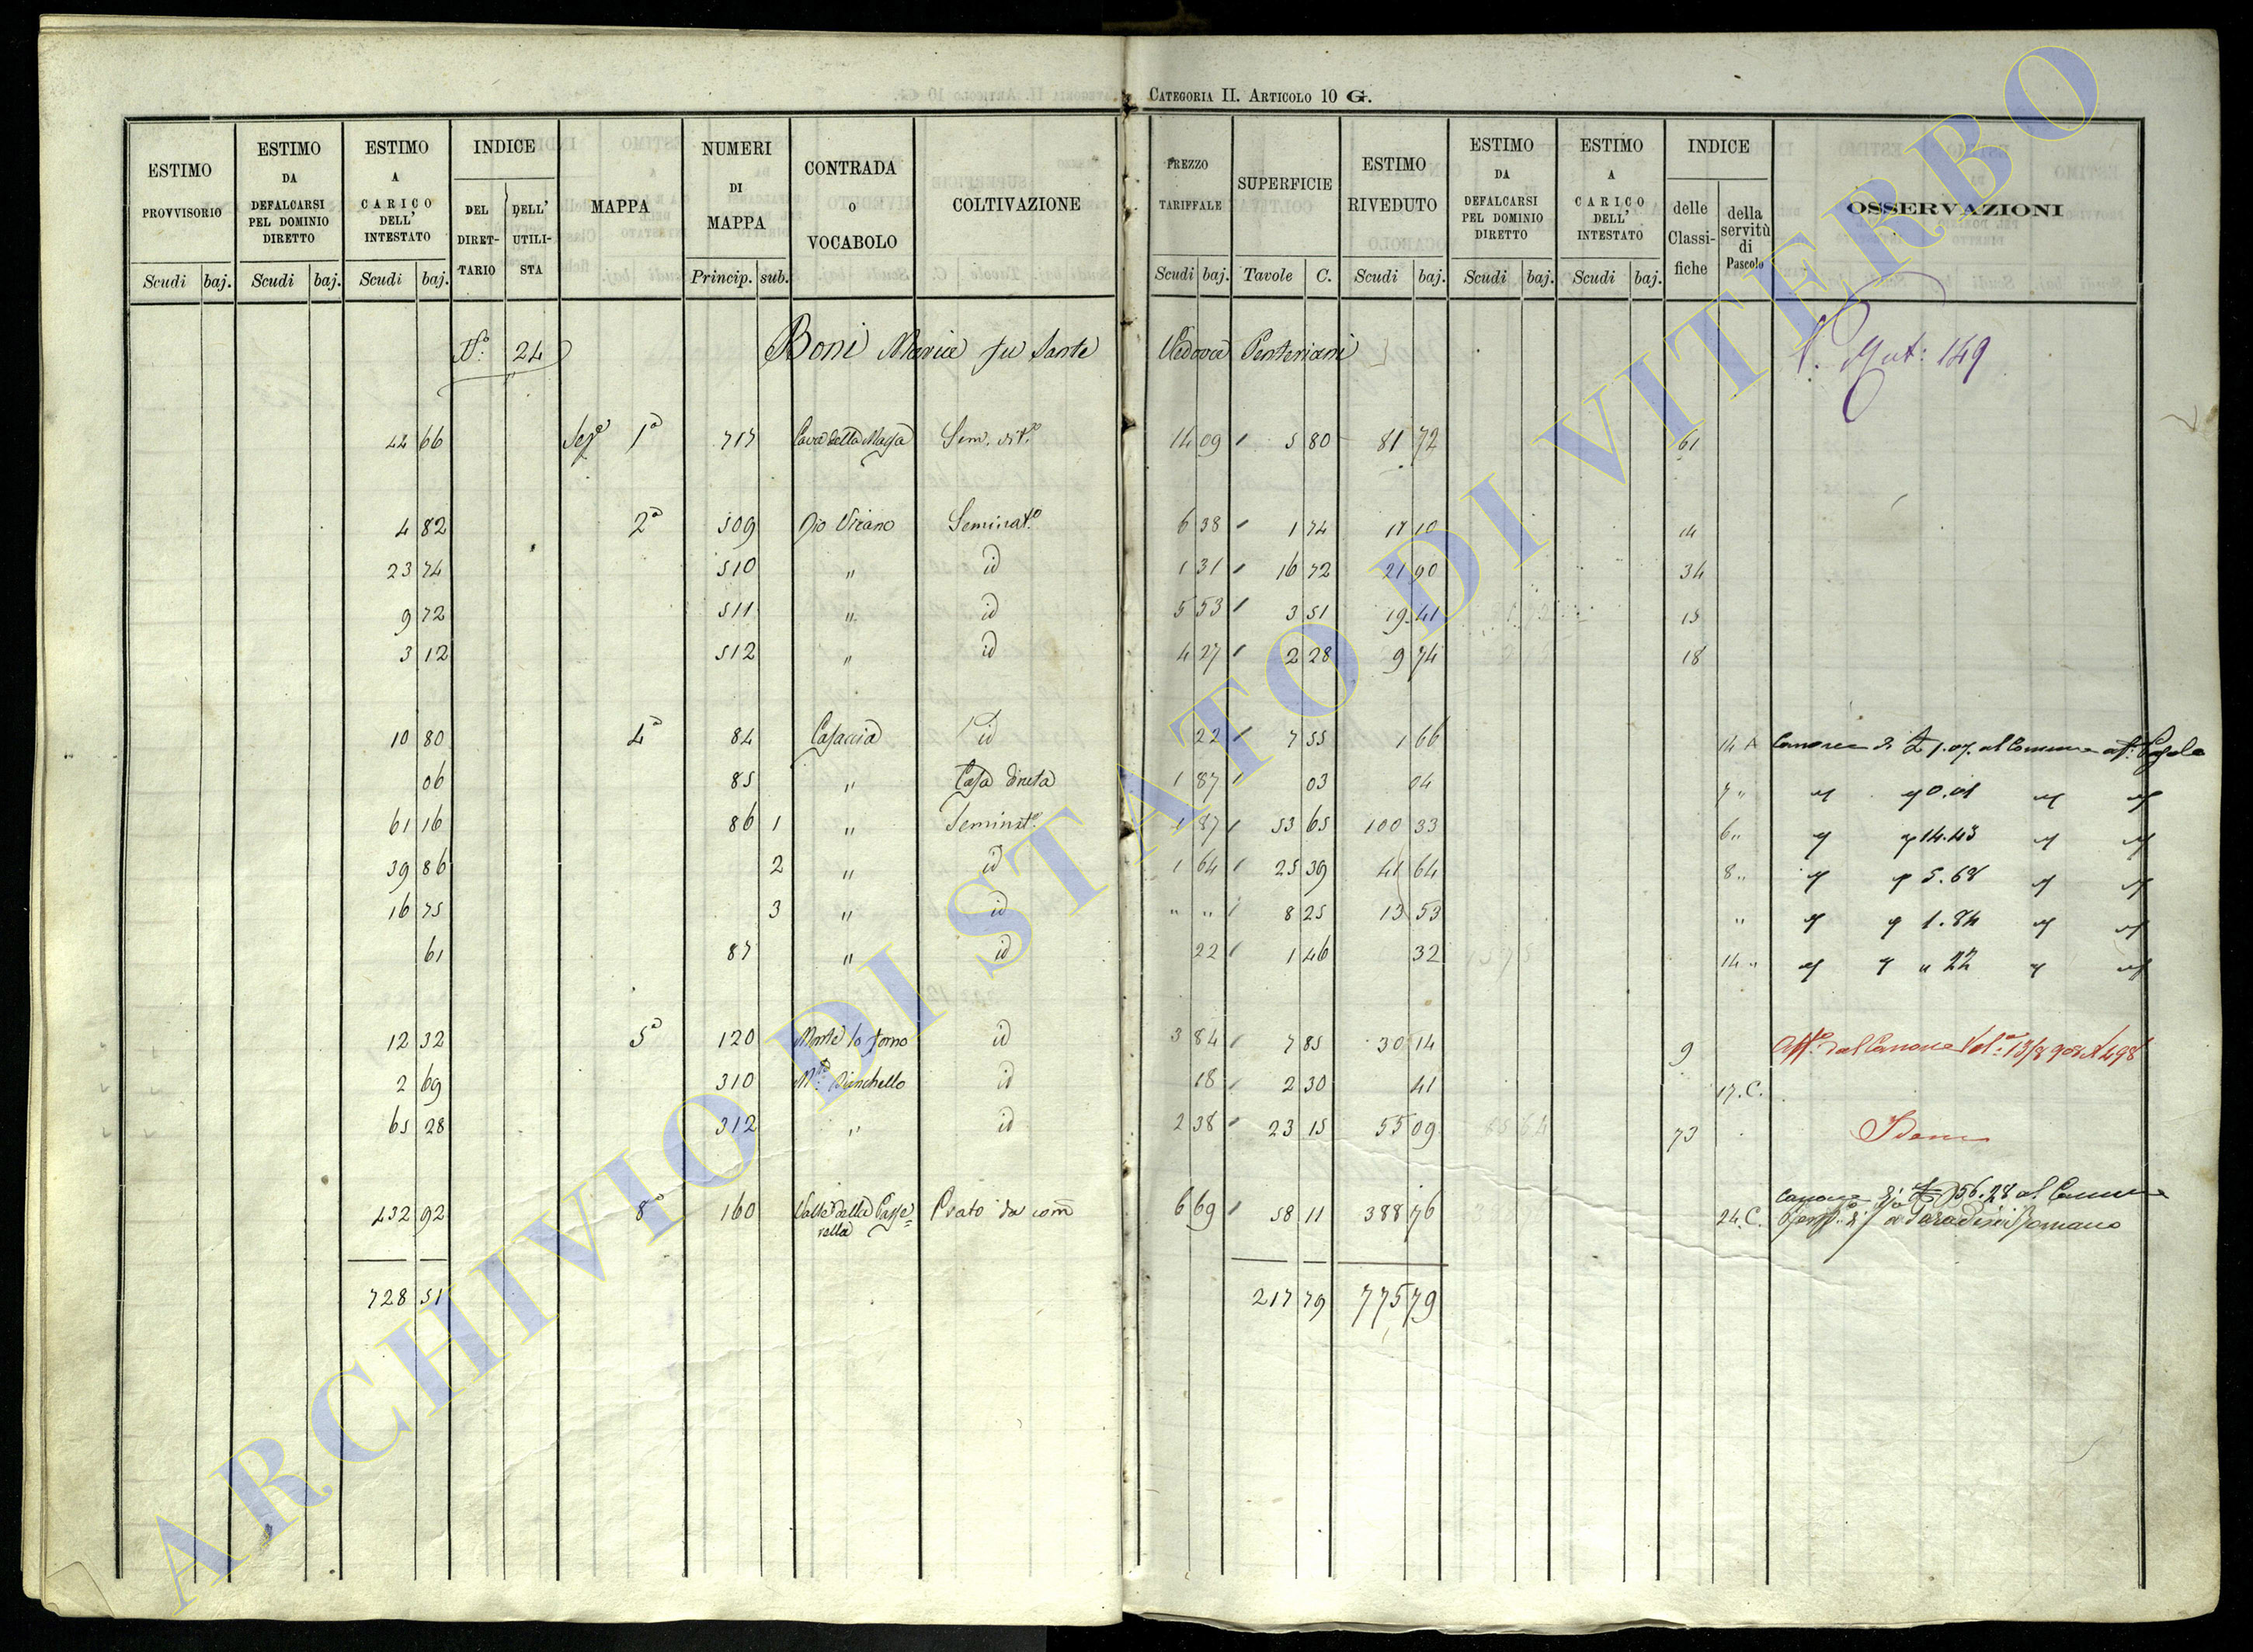 CATEGORIA II. ARTICOLO 10 G.
ESTIMO PROVVISORIO Scudi baj.
ESTIMO DA DEFALCARSI PEL DOMINIO DIRETTO Scudi baj.
ESTIMO A CARICO DELL' INTESTATO Scudi baj.
INDICE DEL DIRET-TARIO DELL' UTILI-STA
MAPPA
NUMERI DI MAPPA Princip. sub.
CONTRADA O VOCABOLO
COLTIVAZIONE
PREZZO TARIFFALE Scudi baj.
SUPERFICIE Tavole C.
ESTIMO RIVEDUTO Scudi baj.
ESTIMO DA DEFALCARSI PEL DOMINIO DIRETTO Scudi baj.
ESTIMO A CARICO DELL' INTESTATO Scudi baj.
INDICE delle Classi-fiche della servitù di Pascolo
OSSERVAZIONI
N.° 24 Boni Maria fu Sante Vedova Penteriani Mut: 149
42 66 Sez.e 1a 717 Cava della Massa Sem. vit.o 14 09 5 80 81 72 61
4 82 2a 509 Pio Virano Seminat.o 6 38 1 74 11 10 14
23 74 510 " id 1 31 16 72 21 90 34
9 72 511 " id 5 53 3 51 19 41 15
3 12 512 " id 4 27 2 28 9 74 18
10 80 4a 84 Casaccia id 22 7 55 1 66 14 A Canone di £ 1.07 al Comune
06 85 " Casa diruta 1 87 03 04 7 " " " 0.01 " "
61 16 86 1 " Seminat.o 1 87 53 65 100 33 6 " " " 14.43 " "
39 86 2 " id 1 64 25 39 41 64 8 " " " 5.68 " "
16 75 3 " id " " 8 25 13 53 " " " 1.84 " "
61 87 " id 22 1 46 32 14 " " " " 22 " "
12 32 5a 120 Monte lo forno id 3 84 7 85 30 14 9 Aff.o dal Canone Vol.a 13/8 908 N 498
2 69 310 M.te Bianchello id 18 2 30 41 17. C.
65 28 312 " id 2 38 23 15 55 09 73 Idem
432 92 8a 160 Valle della Casse= Prato da com 6 69 58 11 388 76 24. C. Canone di £ 56.28 al Comune
rella a Paradisi Romano
728 51 217 79 775 79
ARCHIVIO DI STATO DI VITERBO